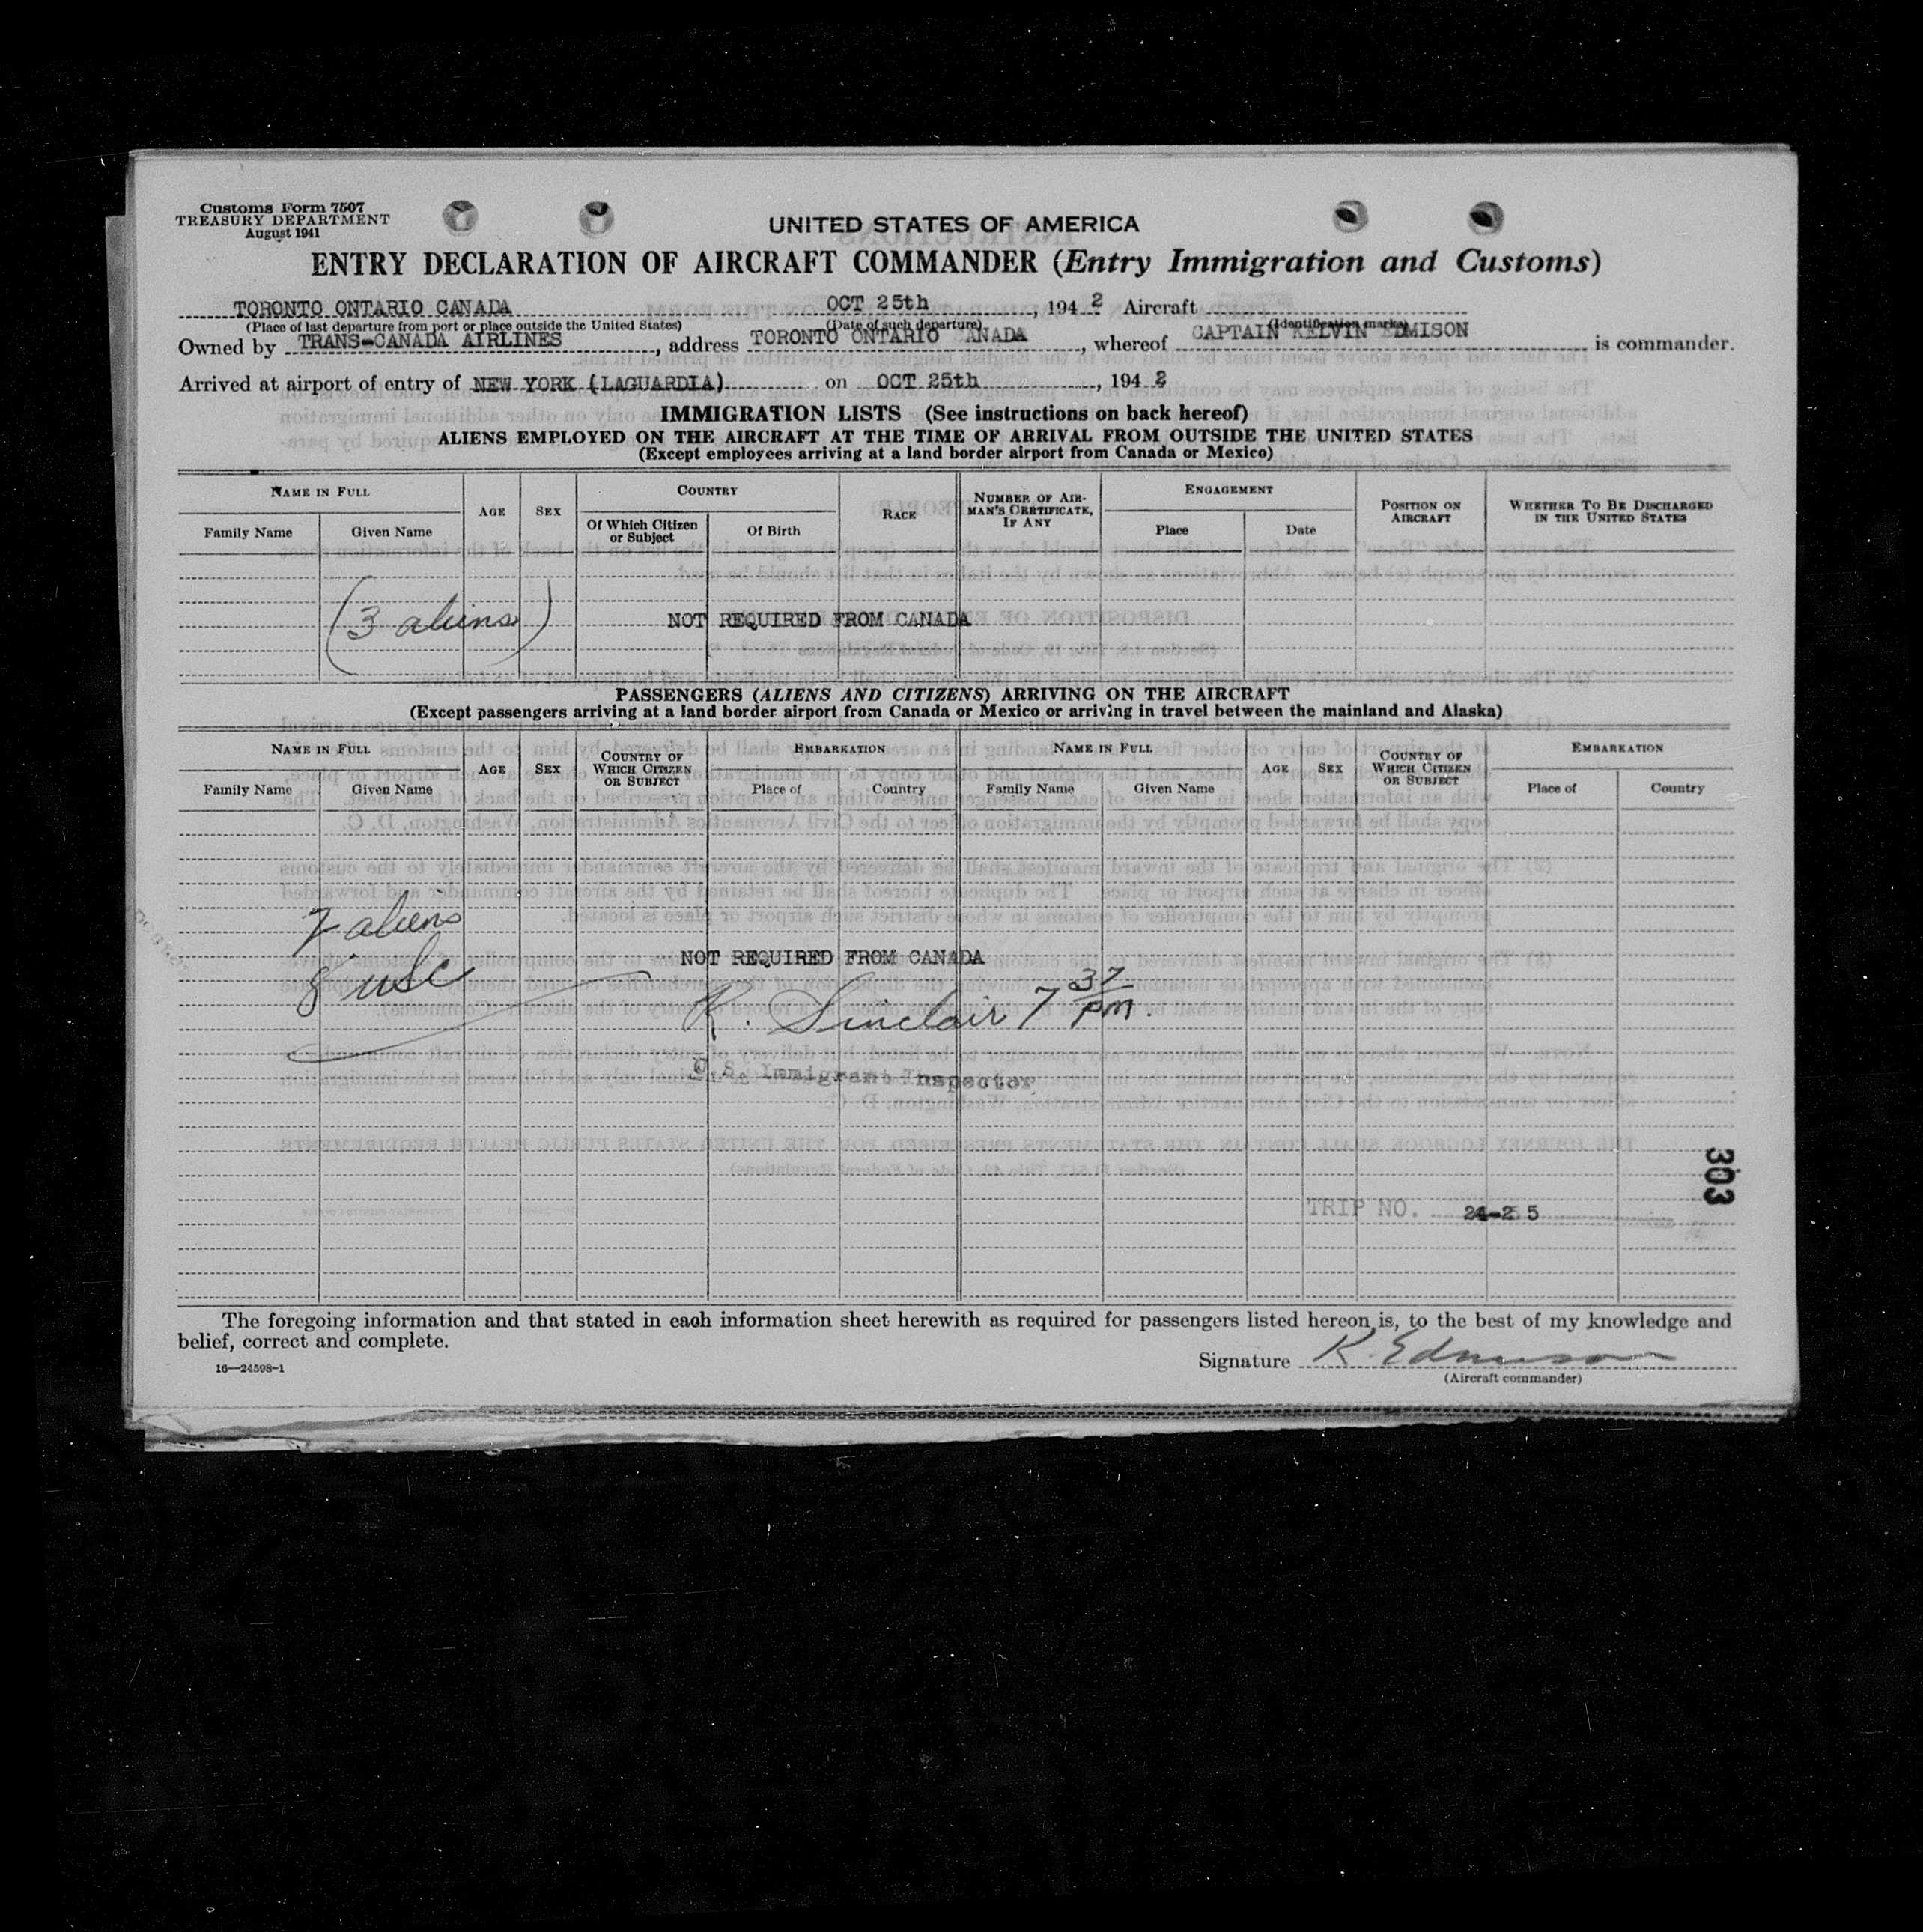 Customs Form 7507
TREASURY DEPARTMENT
August 1941
UNITED STATES OF AMERICA
ENTRY DECLARATION OF AIRCRAFT COMMANDER (Entry Immigration and Customs)
TORONTO ONTARIO CANADA OCT 25th, 1942 Aircraft
(Place of last departure from port or place outside the United States) (Date of such departure) (Identification marks)
Owned by TRANS-CANADA AIRLINES, address TORONTO ONTARIO ANADA, whereof CAPTAIN KELVIN EDMISON is commander.
Arrived at airport of entry of NEW YORK (LAGUARDIA) on OCT 25th, 1942
IMMIGRATION LISTS (See instructions on back hereof)
ALIENS EMPLOYED ON THE AIRCRAFT AT THE TIME OF ARRIVAL FROM OUTSIDE THE UNITED STATES
(Except employees arriving at a land border airport from Canada or Mexico)
NAME IN FULL AGE SEX COUNTRY RACE NUMBER OF AIRMAN'S CERTIFICATE, IF ANY ENGAGEMENT POSITION ON AIRCRAFT WHETHER TO BE DISCHARGED IN THE UNITED STATES
Family Name Given Name Of Which Citizen or Subject Of Birth Place Date
(3 aliens) NOT REQUIRED FROM CANADA
PASSENGERS (ALIENS AND CITIZENS) ARRIVING ON THE AIRCRAFT
(Except passengers arriving at a land border airport from Canada or Mexico or arriving in travel between the mainland and Alaska)
NAME IN FULL AGE SEX COUNTRY OF WHICH CITIZEN OR SUBJECT EMBARKATION NAME IN FULL AGE SEX COUNTRY OF WHICH CITIZEN OR SUBJECT EMBARKATION
Family Name Given Name Place of Country Family Name Given Name Place of Country
7 aliens
8 USC
NOT REQUIRED FROM CANADA
K. Sinclair 7 37 pm.
U.S. Immigrant Inspector
303
TRIP NO. 24-25
The foregoing information and that stated in each information sheet herewith as required for passengers listed hereon is, to the best of my knowledge and
belief, correct and complete.
16—24598-1
Signature K. Edmison
(Aircraft commander)